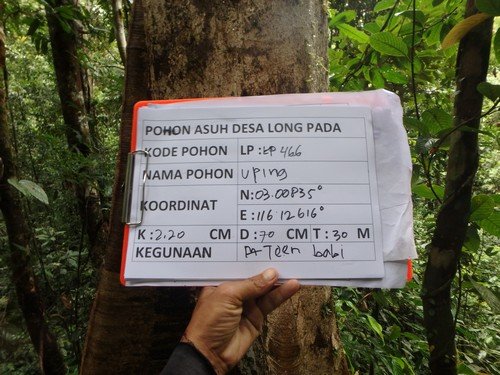 POHON ASUH DESA LONG PADA
KODE POHON LP : LP 466
NAMA POHON uping
KOORDINAT N: 03.00835°
E : 116.12616°
K : 2.20 CM D : 70 CM T : 30 M
KEGUNAAN babi